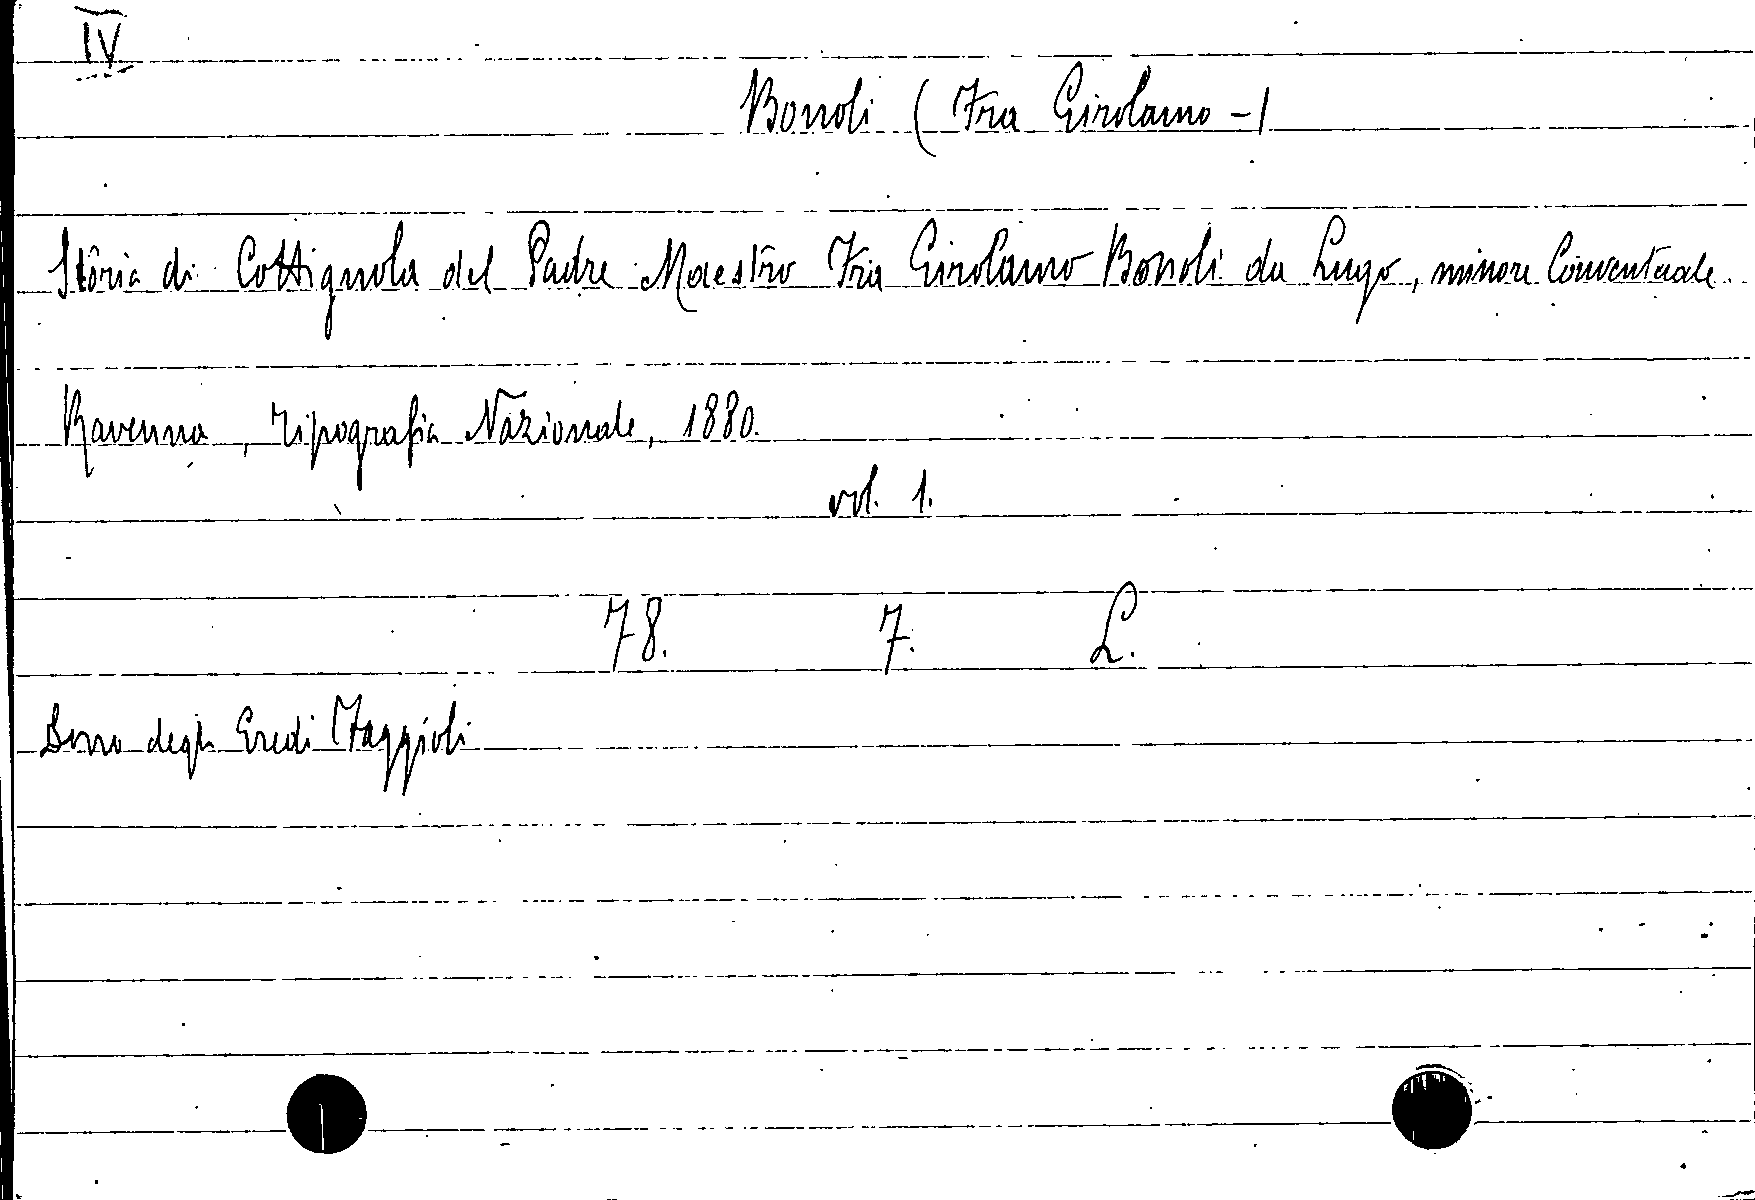 IV
Bonoli (Fra Girolamo -)
Storia di Cottignola del Padre Maestro Fra Girolamo Bonoli da Lugo, minore Conventuale.
Ravenna, Tipografia Nazionale, 1880.
vol. 1.
78. 7. L.
Dono degli Eredi Faggioli